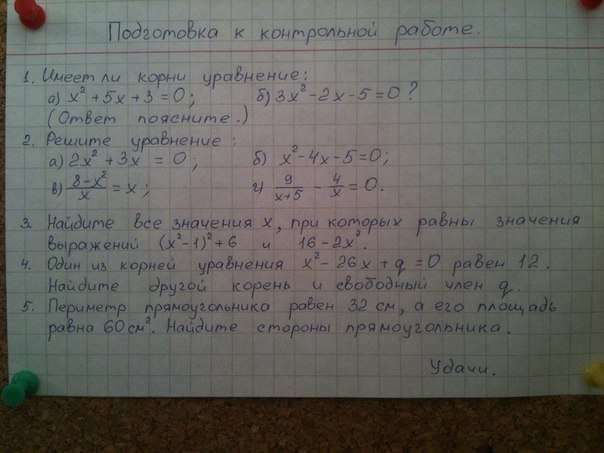 Подготовка к контрольной работе.
1. Имеет ли корни уравнение:
а) x² + 5x + 3 = 0; б) 3x² - 2x - 5 = 0?
(Ответ поясните.)
2. Решите уравнение:
а) 2x² + 3x = 0; б) x² - 4x - 5 = 0;
в) (8 - x²)/x = x; г) 9/(x+5) - 4/x = 0.
3. Найдите все значения x, при которых равны значения
выражений (x² - 1)² + 6 и 16 - 2x².
4. Один из корней уравнения x² - 26x + q = 0 равен 12.
Найдите другой корень и свободный член q.
5. Периметр прямоугольника равен 32 см, а его площадь
равна 60 см². Найдите стороны прямоугольника.
Удачи.